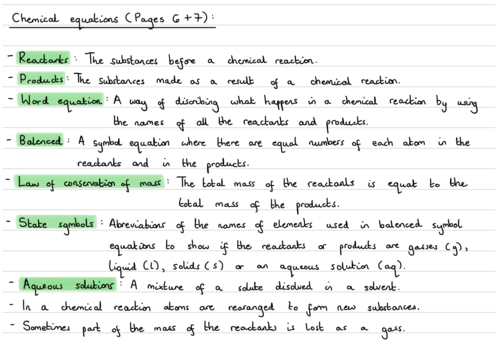 Chemical equations (Pages 6 + 7):
- Reactants: The substances before a chemical reaction.
- Products: The substances made as a result of a chemical reaction.
- Word equation: A way of discribing what happens in a chemical reaction by using
the names of all the reactants and products.
- Balenced: A symbol equation where there are equal numbers of each atom in the
reactants and in the products.
- Law of conservation of mass: The total mass of the reactants is equal to the
total mass of the products.
- State symbols: Abreviations of the names of elements used in balenced symbol
equations to show if the reactants or products are gasses (g),
liquid (l), solids (s) or an aqueous solution (aq).
- Aqueous solutions: A mixture of a solute disolved in a solvent.
- In a chemical reaction atoms are rearanged to form new substances.
- Sometimes part of the mass of the reactants is lost as a gas.